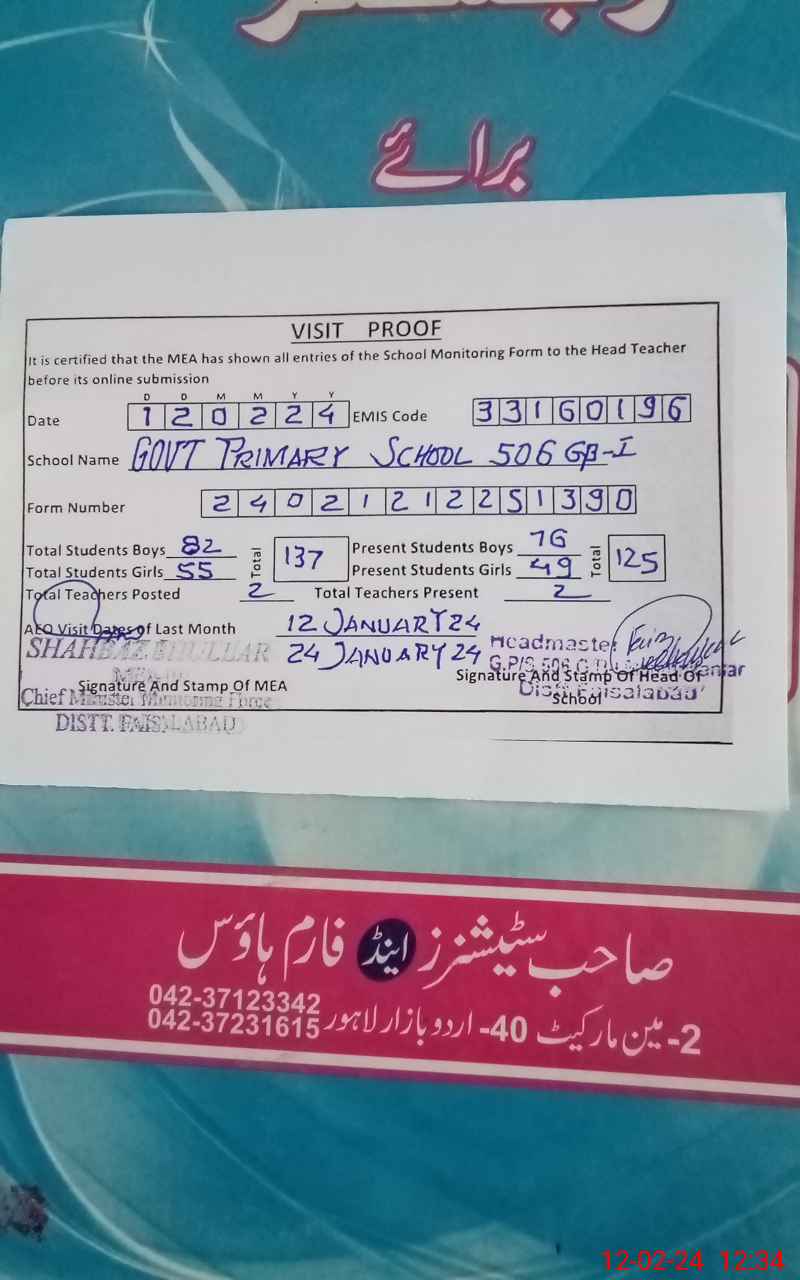 رجسٹر
برائے
VISIT PROOF
It is certified that the MEA has shown all entries of the School Monitoring Form to the Head Teacher
before its online submission
D D M M Y Y
Date 1 2 0 2 2 4 EMIS Code 3 3 1 6 0 1 9 6
School Name GOVT PRIMARY SCHOOL 506 GB-I
Form Number 2 4 0 2 1 2 1 2 2 5 1 3 9 0
Total Students Boys 82 Total 137 Present Students Boys 76 Total 125
Total Students Girls 55 Present Students Girls 49
Total Teachers Posted 2 Total Teachers Present 2
AEO Visit Dates of Last Month 12 JANUARY 24
24 JANUARY 24
SHAHBAZ BHULLAR
Headmaster
G.P/S 506
Signature And Stamp Of MEA
Signature And Stamp Of Head Of
School
Chief Minister Monitoring Force
Distt. Faisalabad
DISTT. FAISALABAD
صاحب سٹیشنرز اینڈ فارم ہاؤس
042-37123342
042-37231615
2- مین مارکیٹ 40- اردو بازار لاہور
12-02-24 12:34